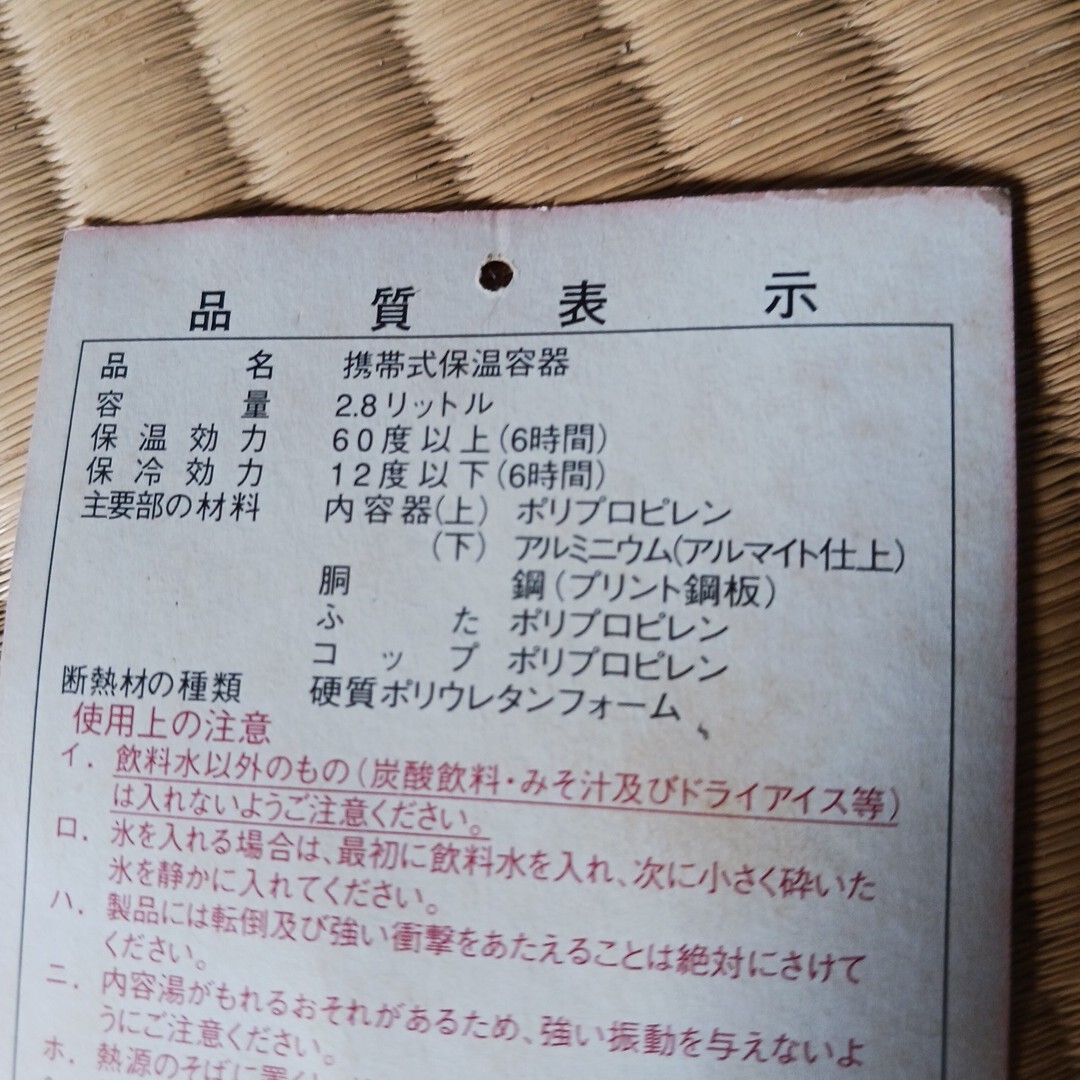 品質表示
品名 携帯式保温容器
容量 2.8リットル
保温効力 60度以上(6時間)
保冷効力 12度以下(6時間)
主要部の材料 内容器(上) ポリプロピレン
(下) アルミニウム(アルマイト仕上)
胴 鋼(プリント鋼板)
ふた ポリプロピレン
コップ ポリプロピレン
断熱材の種類 硬質ポリウレタンフォーム
使用上の注意
イ. 飲料水以外のもの(炭酸飲料・みそ汁及びドライアイス等)
は入れないようご注意ください。
ロ. 氷を入れる場合は、最初に飲料水を入れ、次に小さく砕いた
氷を静かに入れてください。
ハ. 製品には転倒及び強い衝撃をあたえることは絶対にさけて
ください。
ニ. 内容湯がもれるおそれがあるため、強い振動を与えないよ
うにご注意ください。
ホ. 熱源のそばに置く